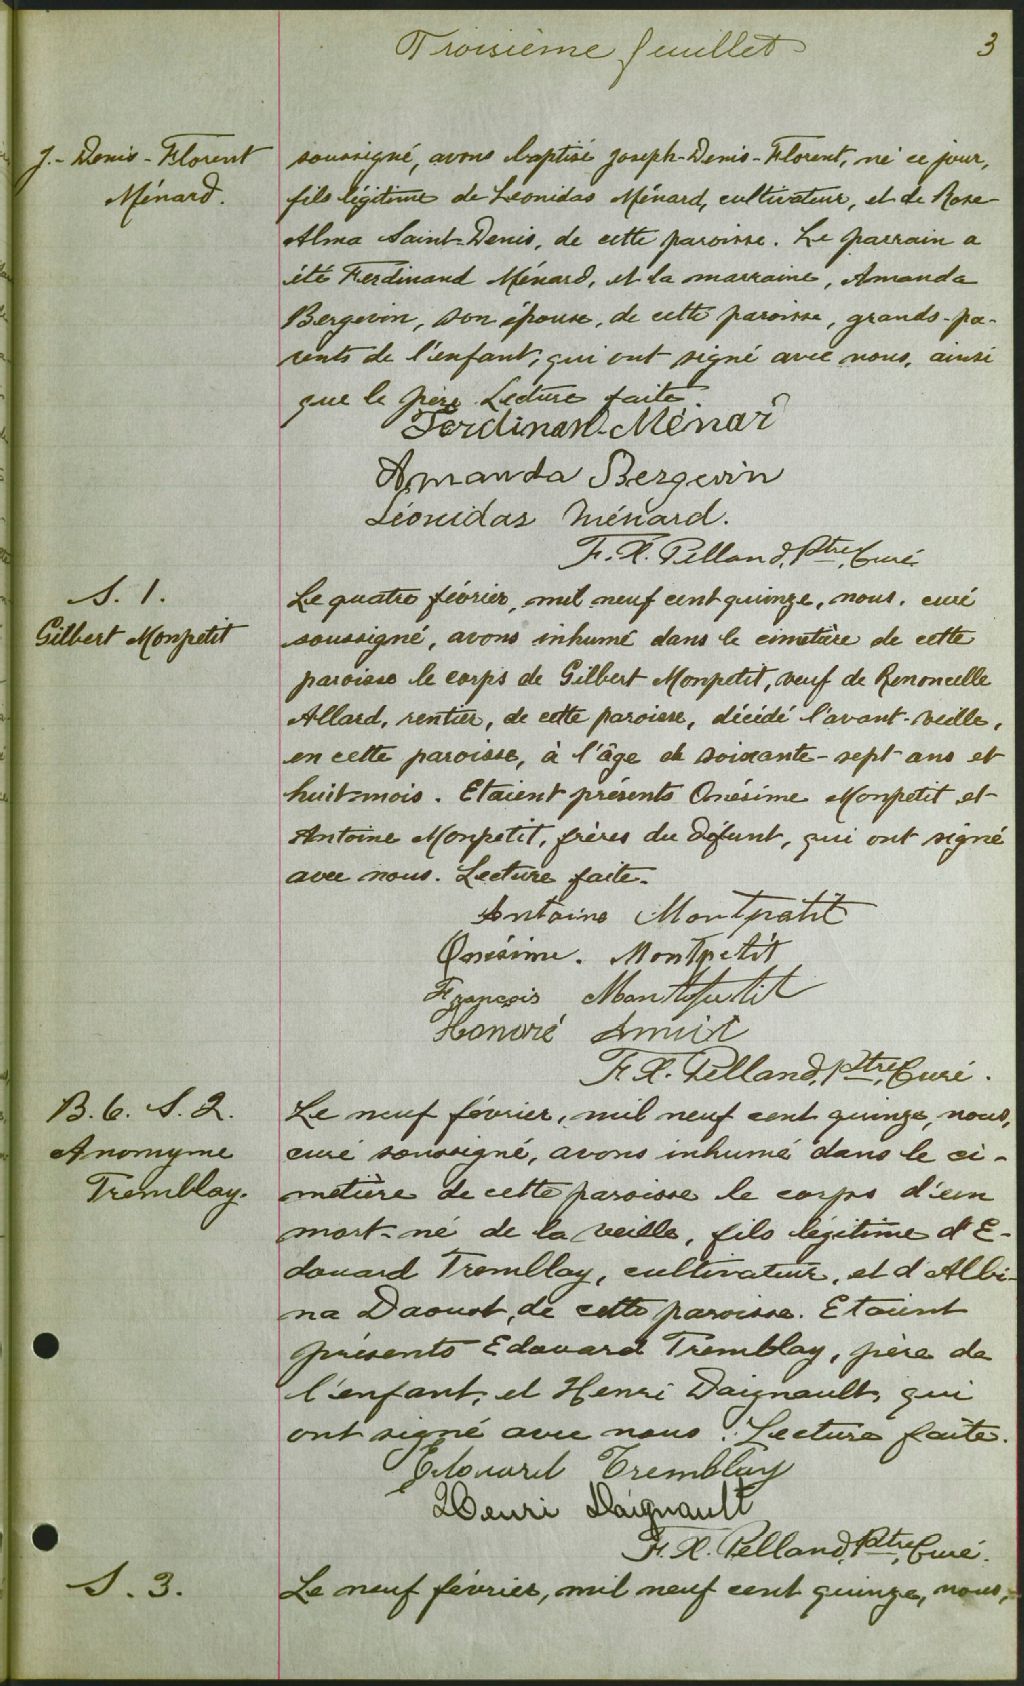 Troisième feuillet
3
J.-Denis-Florent
Ménard.
soussigné, avons baptisé Joseph-Denis-Florent, né ce jour,
fils légitime de Léonidas Ménard, cultivateur, et de Rose-
Alma Saint-Denis, de cette paroisse. Le parrain a
été Ferdinand Ménard, et la marraine, Amanda
Bergevin, son épouse, de cette paroisse, grands-pa-
rents de l'enfant, qui ont signé avec nous, ainsi
que le père. Lecture faite.
Ferdinand Ménard
Amanda Bergevin
Léonidas Ménard.
F. X. Pelland, Ptre, Curé
S. 1.
Gilbert Monpetit
Le quatre février, mil neuf cent quinze, nous, curé
soussigné, avons inhumé dans le cimetière de cette
paroisse le corps de Gilbert Monpetit, veuf de Renoncelle
Allard, rentier, de cette paroisse, décédé l'avant-veille,
en cette paroisse, à l'âge de soixante-sept ans et
huit mois. Etaient présents Onésime Monpetit et
Antoine Monpetit, frères du défunt, qui ont signé
avec nous. Lecture faite.
Antoine Montpetit
Onésime. Montpetit
François Montpetit
Honoré
F. X. Pelland, Ptre, Curé.
B. 6. S. 2.
Anonyme
Tremblay.
Le neuf février, mil neuf cent quinze, nous,
curé soussigné, avons inhumé dans le ci-
metière de cette paroisse le corps d'un
mort-né de la veille, fils légitime d'E-
douard Tremblay, cultivateur, et d'Albi-
na Daoust, de cette paroisse. Etaient
présents Edouard Tremblay, père de
l'enfant, et Henri Daignault, qui
ont signé avec nous. Lecture faite.
Edouard Tremblay
Henri Daignault
F. X. Pelland, Ptre, Curé.
S. 3.
Le neuf février, mil neuf cent quinze, nous,